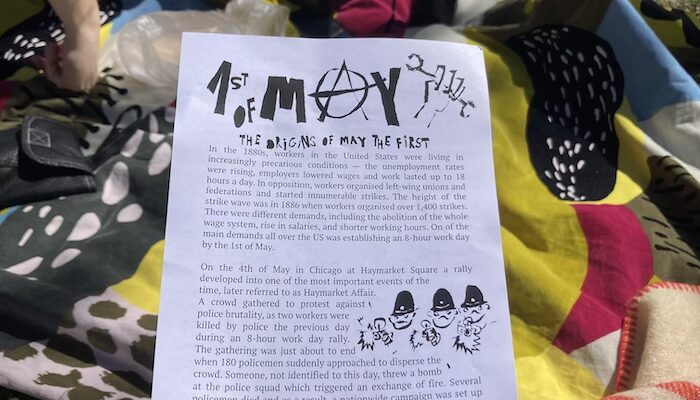 1ST OF MAY
THE ORIGINS OF MAY THE FIRST
In the 1880s, workers in the United States were living in
increasingly precarious conditions — the unemployment rates
were rising, employers lowered wages and work lasted up to 18
hours a day. In opposition, workers organised left-wing unions and
federations and started innumerable strikes. The height of the
strike wave was in 1886 when workers organised over 1,400 strikes.
There were different demands, including the abolition of the whole
wage system, rise in salaries, and shorter working hours. On of the
main demands all over the US was establishing an 8-hour work day
by the 1st of May.
On the 4th of May in Chicago at Haymarket Square a rally
developed into one of the most important events of the
time, later referred to as Haymarket Affair.
A crowd gathered to protest against
police brutality, as two workers were
killed by police the previous day
during an 8-hour work day rally.
The gathering was just about to end
when 180 policemen suddenly approached to disperse the
crowd. Someone, not identified to this day, threw a bomb
at the police squad which triggered an exchange of fire. Several
policemen died and as a result, a nationwide campaign was set up